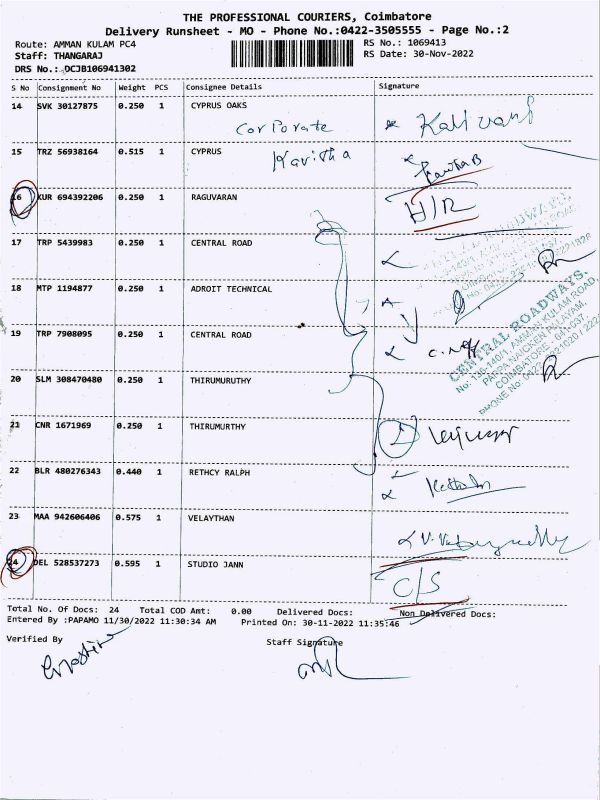 THE PROFESSIONAL COURIERS, Coimbatore
Delivery Runsheet - MO - Phone No.:0422-3505555 - Page No.:2
Route: AMMAN KULAM PC4
RS No.: 1069413
Staff: THANGARAJ
RS Date: 30-Nov-2022
DRS No.: DCJB106941302
S No Consignment No Weight PCS Consignee Details Signature
14 SVK 30127875 0.250 1 CYPRUS OAKS
Corporate
15 TRZ 56938164 0.515 1 CYPRUS
Kavitha
16 KUR 694392206 0.250 1 RAGUVARAN H/R
17 TRP 5439983 0.250 1 CENTRAL ROAD
18 MTP 1194877 0.250 1 ADROIT TECHNICAL
19 TRP 7908095 0.250 1 CENTRAL ROAD
CENTRAL ROADWAYS,
AMMAN KULAM ROAD,
PAPPA NAICKEN PALAYAM,
COIMBATORE - 641 037.
20 SLM 308470480 0.250 1 THIRUMURUTHY
21 CNR 1671969 0.250 1 THIRUMURTHY
22 BLR 480276343 0.440 1 RETHCY RALPH
23 MAA 942606406 0.575 1 VELAYTHAN
24 DEL 528537273 0.595 1 STUDIO JANN C/S
Total No. Of Docs: 24 Total COD Amt: 0.00 Delivered Docs: Non Delivered Docs:
Entered By :PAPAMO 11/30/2022 11:30:34 AM Printed On: 30-11-2022 11:35:46
Verified By
Staff Signature